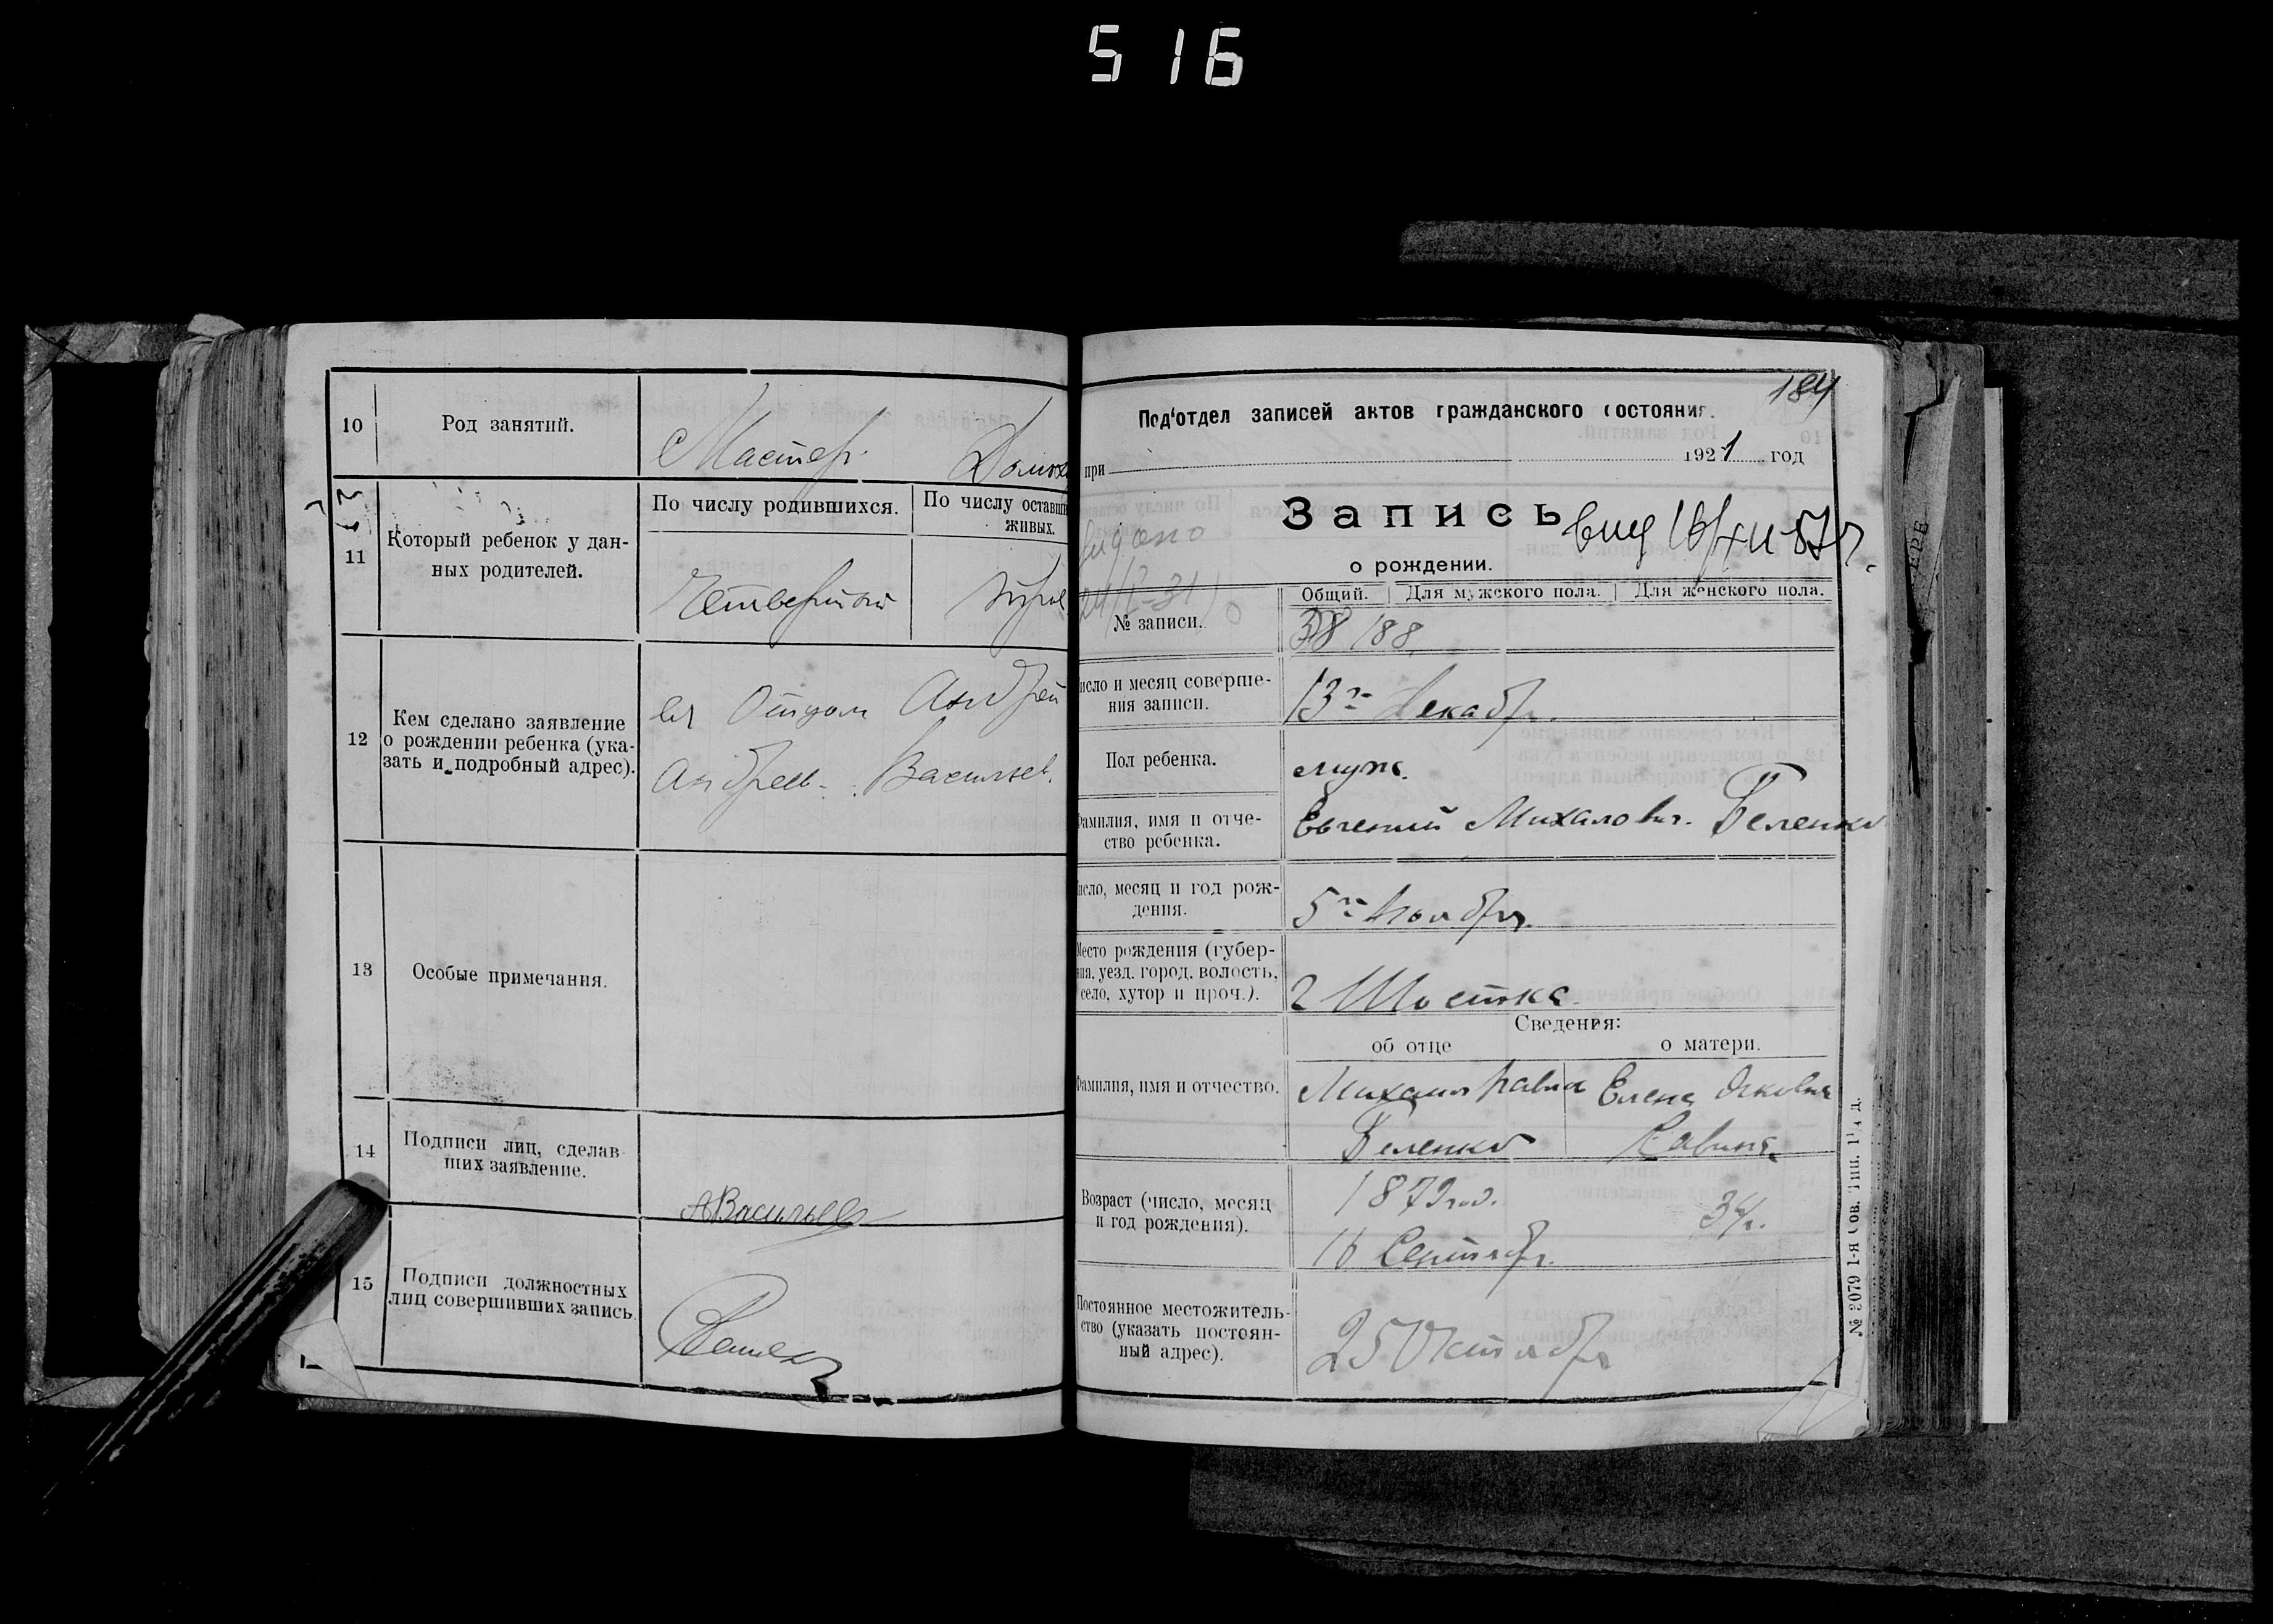 516
10
Род занятий.
Мастер.
11
Который ребенок у дан-
ных родителей.
По числу родившихся.
По числу оставши
живых.
Четвертый
12
Кем сделано заявление
о рождении ребенка (ука-
зать и подробный адрес).
Отцом Андрей
Андреев. Васильев.
13
Особые примечания.
14
Подписи лиц, сделав
ших заявление.
АВасильев
15
Подписи должностных
лиц совершивших запись
184
Под'отдел записей актов гражданского состояния.
при 1921 год
Запись
о рождении.
Общий. Для мужского пола. Для женского пола.
№ записи.
188.
исло и месяц соверше-
ния записи.
13го Декабр.
Пол ребенка.
муж.
Фамилия, имя и отче-
ство ребенка.
Евгений Михалович. Беленко
исло, месяц и год рож-
дения.
5го Ноября.
Место рождения (губер-
ния, уезд, город, волость,
село, хутор и проч.).
г Шостка.
Сведения:
об отце
о матери.
Фамилия, имя и отчество.
Михаил Павл
Елена
Беленко
Возраст (число, месяц
и год рождения).
34г.
16 Сентябр.
Постоянное местожитель-
ство (указать постоян-
ный адрес).
25 Октября
№ 2079 1-я Сов. Тип.